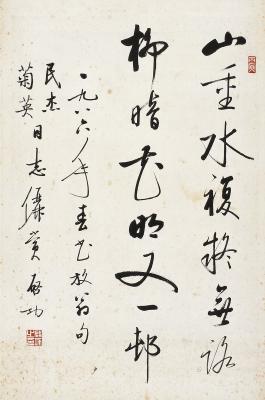 山重水複疑無路
柳暗花明又一邨
一九八六年春書放翁句
民杰
菊英同志儷賞 啟功